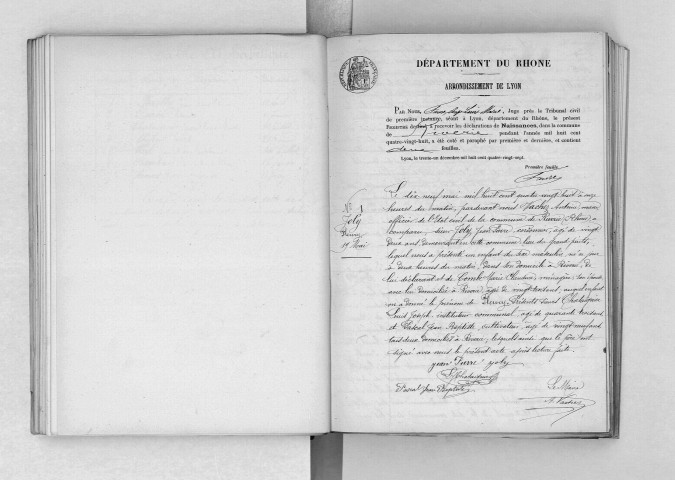 DÉPARTEMENT DU RHONE
ARRONDISSEMENT DE LYON
PAR NOUS, Juge près le Tribunal civil
de première instance, séant à Lyon, département du Rhône, le présent
REGISTRE destiné à recevoir les déclarations de Naissances, dans la commune
de Riverie pendant l'année mil huit cent
quatre-vingt-huit, a été coté et paraphé par première et dernière, et contient
deux feuilles.
Lyon, le trente-un décembre mil huit cent quatre-vingt-sept.
Première feuille
N° 1
Joly
19 Mai
Le dix neuf mai mil huit cent quatre vingt huit à onze
heures du matin, pardevant nous Vacher Antoine, maire
officier de l'état civil de la commune de Riverie (Rhône) a
comparu sieur Joly Jean Pierre âgé de vingt
deux ans demeurant en cette commune
lequel nous a présenté un enfant du sexe masculin né ce jour
à deux heures du matin, dans son domicile à Riverie, de
lui déclarant et de Marie Claudine, ménagère, son épouse
avec lui domiciliée à Riverie, âgée de auquel enfant
on a donné le prénom de Présents sieurs
Joseph, instituteur communal, âgé de quarante
et Pascal Jean Baptiste, cultivateur, âgé de vingt neuf ans
tous deux domiciliés à Riverie, lesquels ainsi que le père ont
signé avec nous le présent acte après lecture faite.
Jean Pierre Joly
Pascal Jean Baptiste
Le Maire